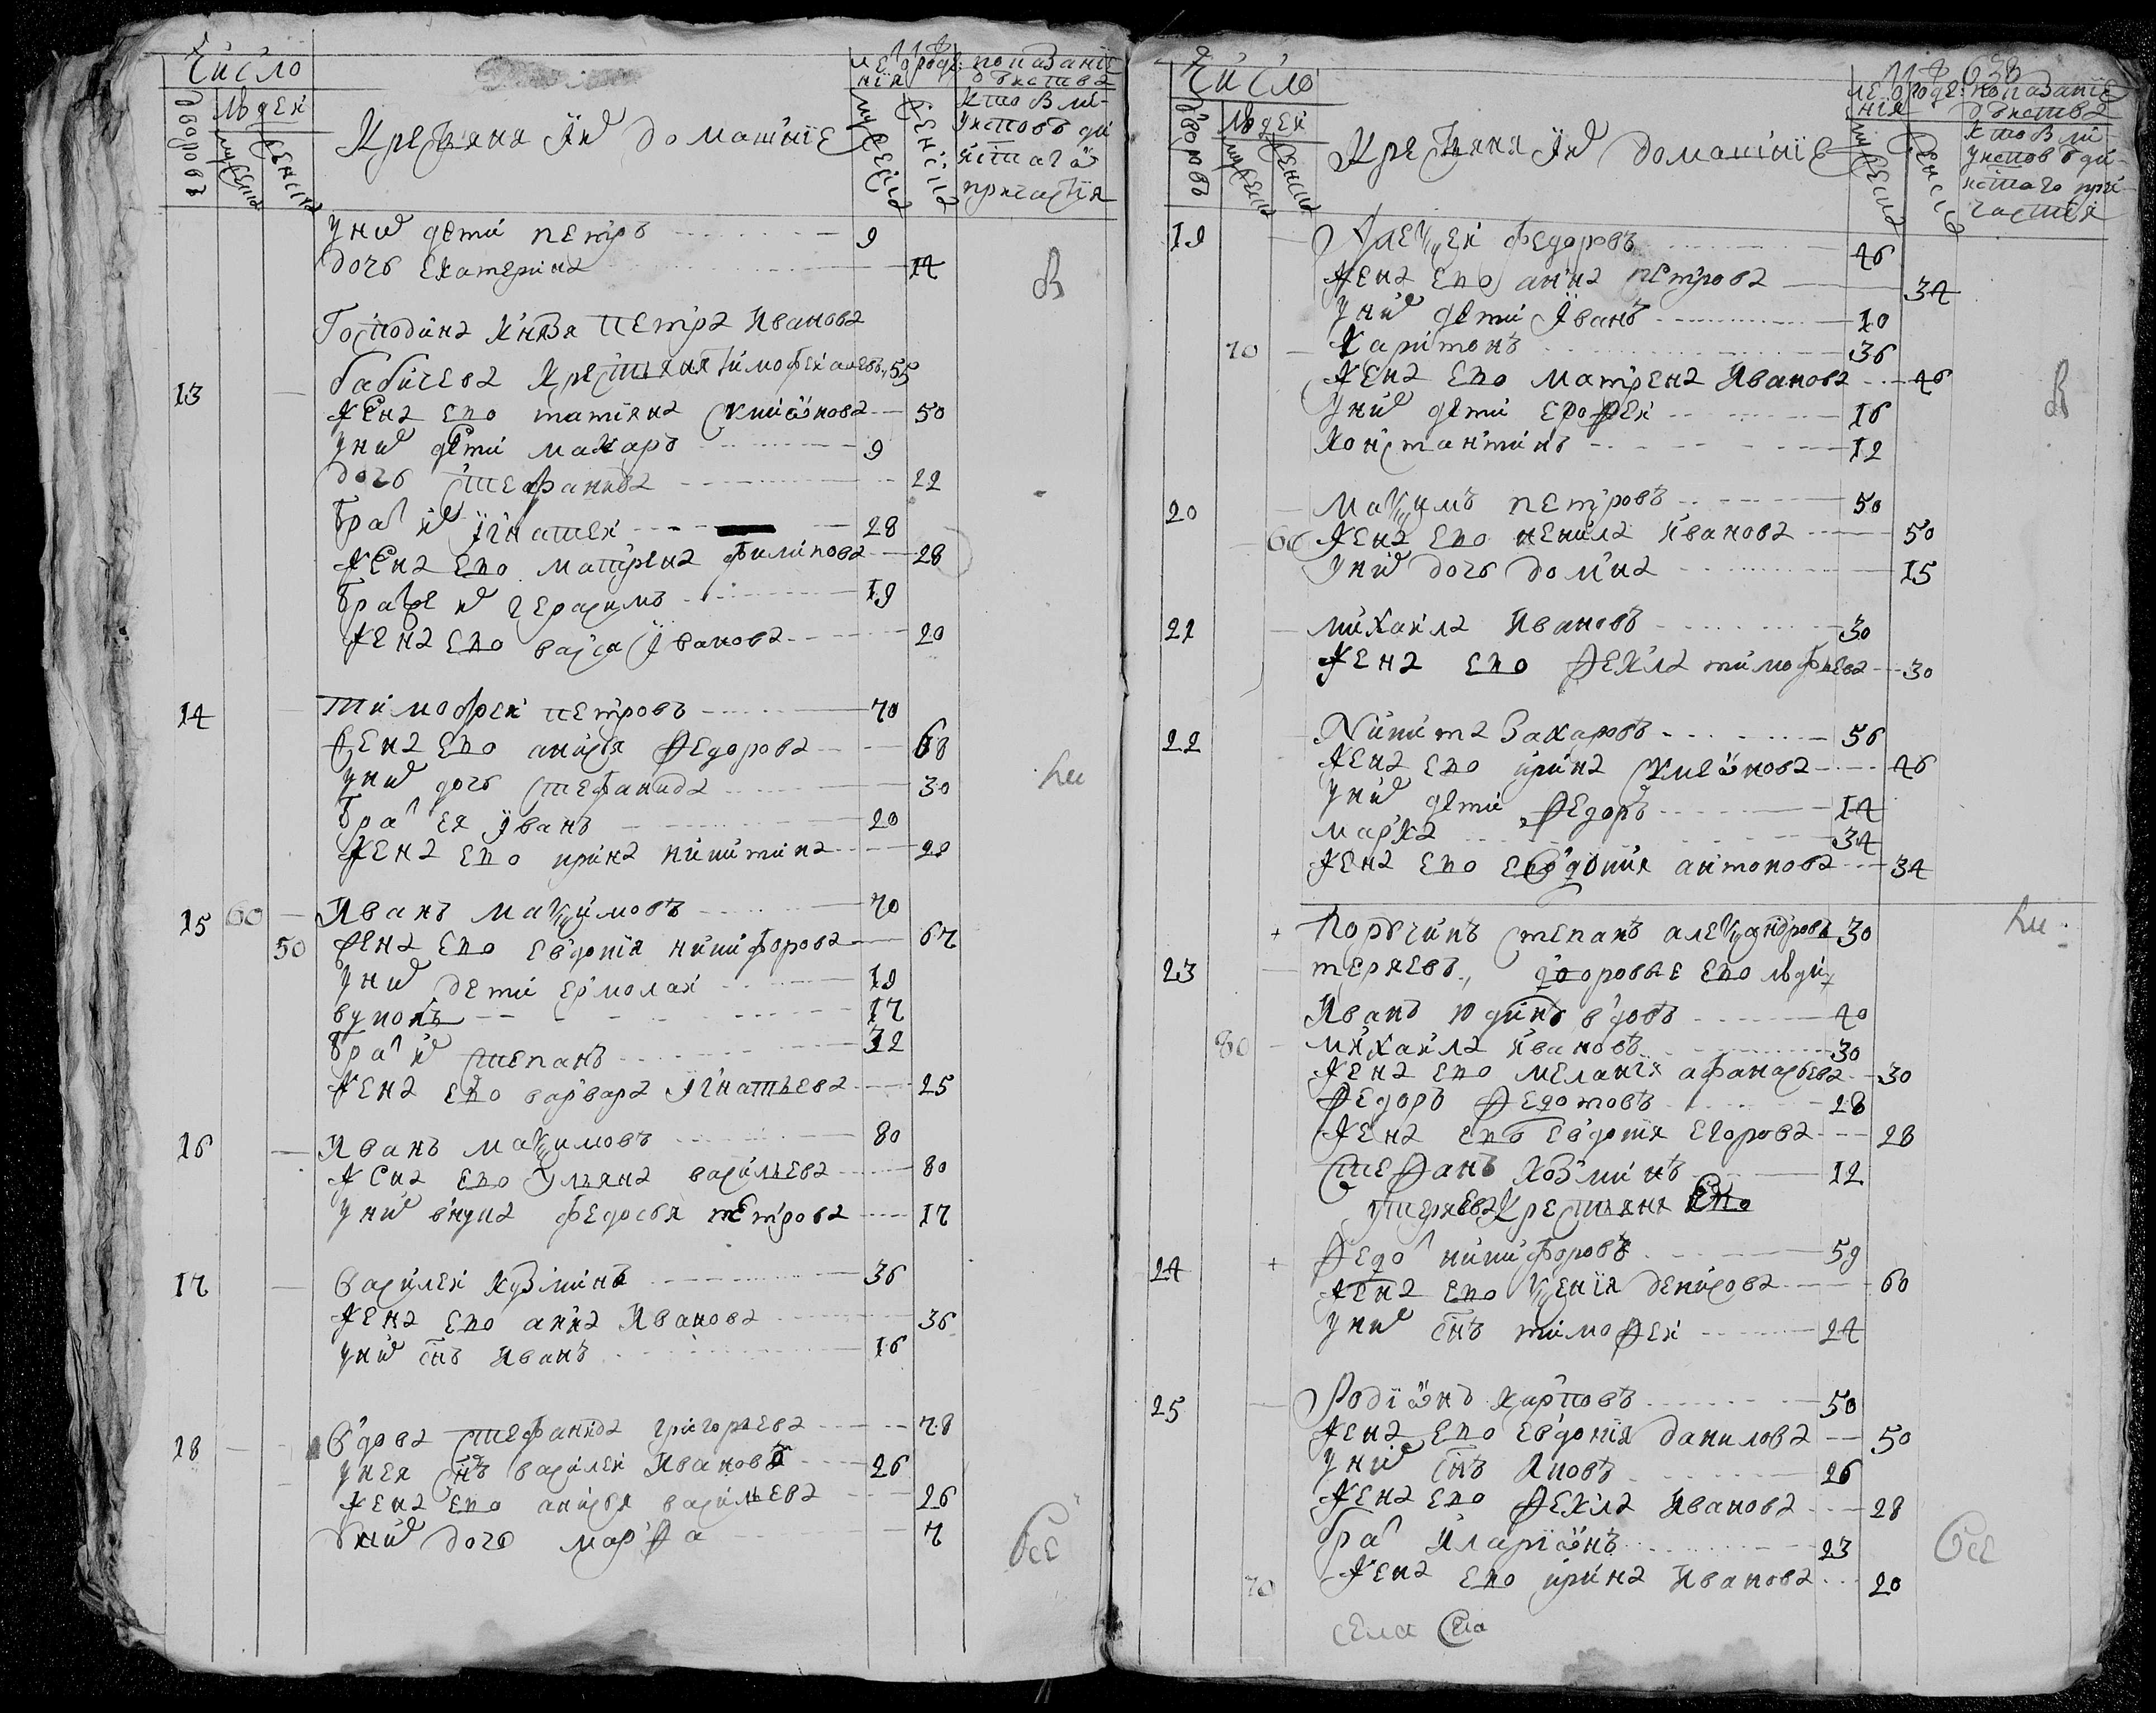 Число
дворовъ
людеи
мужеска
женска
Крестьяня ихъ домашние
мужеска
женска
показание
действа
кто были
у исповеди
и стаго
причастия
у нихъ дети петръ 9
дочь екатерина 14
Господина князя петра иванова
13 бабичева крестьяня тимофеи 55
жена ево татияна симионова 50
у нихъ дети макаръ 9
дочь стефанида 22
братъ ихъ игнатеи 28
жена ево матрена филипова 28
братъ ихъ герасимъ 19
жена ево васса иванова 20
14 тимофеи петровъ 70
жена ево анисья федорова 68
у нихъ дочь стефанида 30
братъ ея иванъ 20
жена ево ирина никитина 20
15 60 Иванъ маѯимовъ 70
50 жена ево евдокия никифорова 67
у нихъ дети ермолаи 19
вуколъ 17
братъ ихъ степанъ 32
жена ево варвара игнатьева 25
16 Иванъ маѯимовъ 80
жена ево ульяна васильева 80
у нихъ внука федосья петрова 17
17 василеи кузминъ 36
жена ево анна иванова 36
у нихъ снъ иванъ 16
18 вдова стефанида григорьева 78
у нея снъ василеи ивановъ 26
жена ево анисья васильева 26
у нихъ дочь марфа 7
В
ли
все
638
Число
дворовъ
людеи
мужеска
женска
Крестьяня ихъ домашние
мужеска
женска
показание
действа
кто были
у исповеди
и стаго при
частия
19 Алеѯеи федоровъ 46
жена ево анна петрова 34
у нихъ дети иванъ 10
70 Харитонъ 36
жена ево матрена иванова 46
у нихъ дети ерофеи 16
константинъ 12
20 маѯимъ петровъ 50
60 жена ево ненила иванова 50
у нихъ дочь домна 15
21 михаила ивановъ 30
жена ево фекла тимофеева 30
22 Никита захаровъ 56
жена ево ирина симионова 46
у нихъ дети федоръ 14
марка 34
жена ево евдокия антонова 34
+ степанъ алеѯандровъ 30
23 теряевъ, дворовые ево люди
Иванъ юдинъ вдовъ 40
80 михаила ивановъ 30
жена ево мелания афанасьева 30
федоръ федотовъ 28
жена ево евдокия егорова 28
стефанъ козминъ 12
у теряева крестьяня ево
24 + федоръ никифоровъ 59
жена ево ѯения денисова 60
у нихъ снъ тимофеи 24
25 Родионъ карповъ 50
жена ево евдокия данилова 50
у нихъ снъ яковъ 26
жена ево фекла иванова 28
братъ иларионъ 23
70 жена ево ирина иванова 20
В
ли
все
села